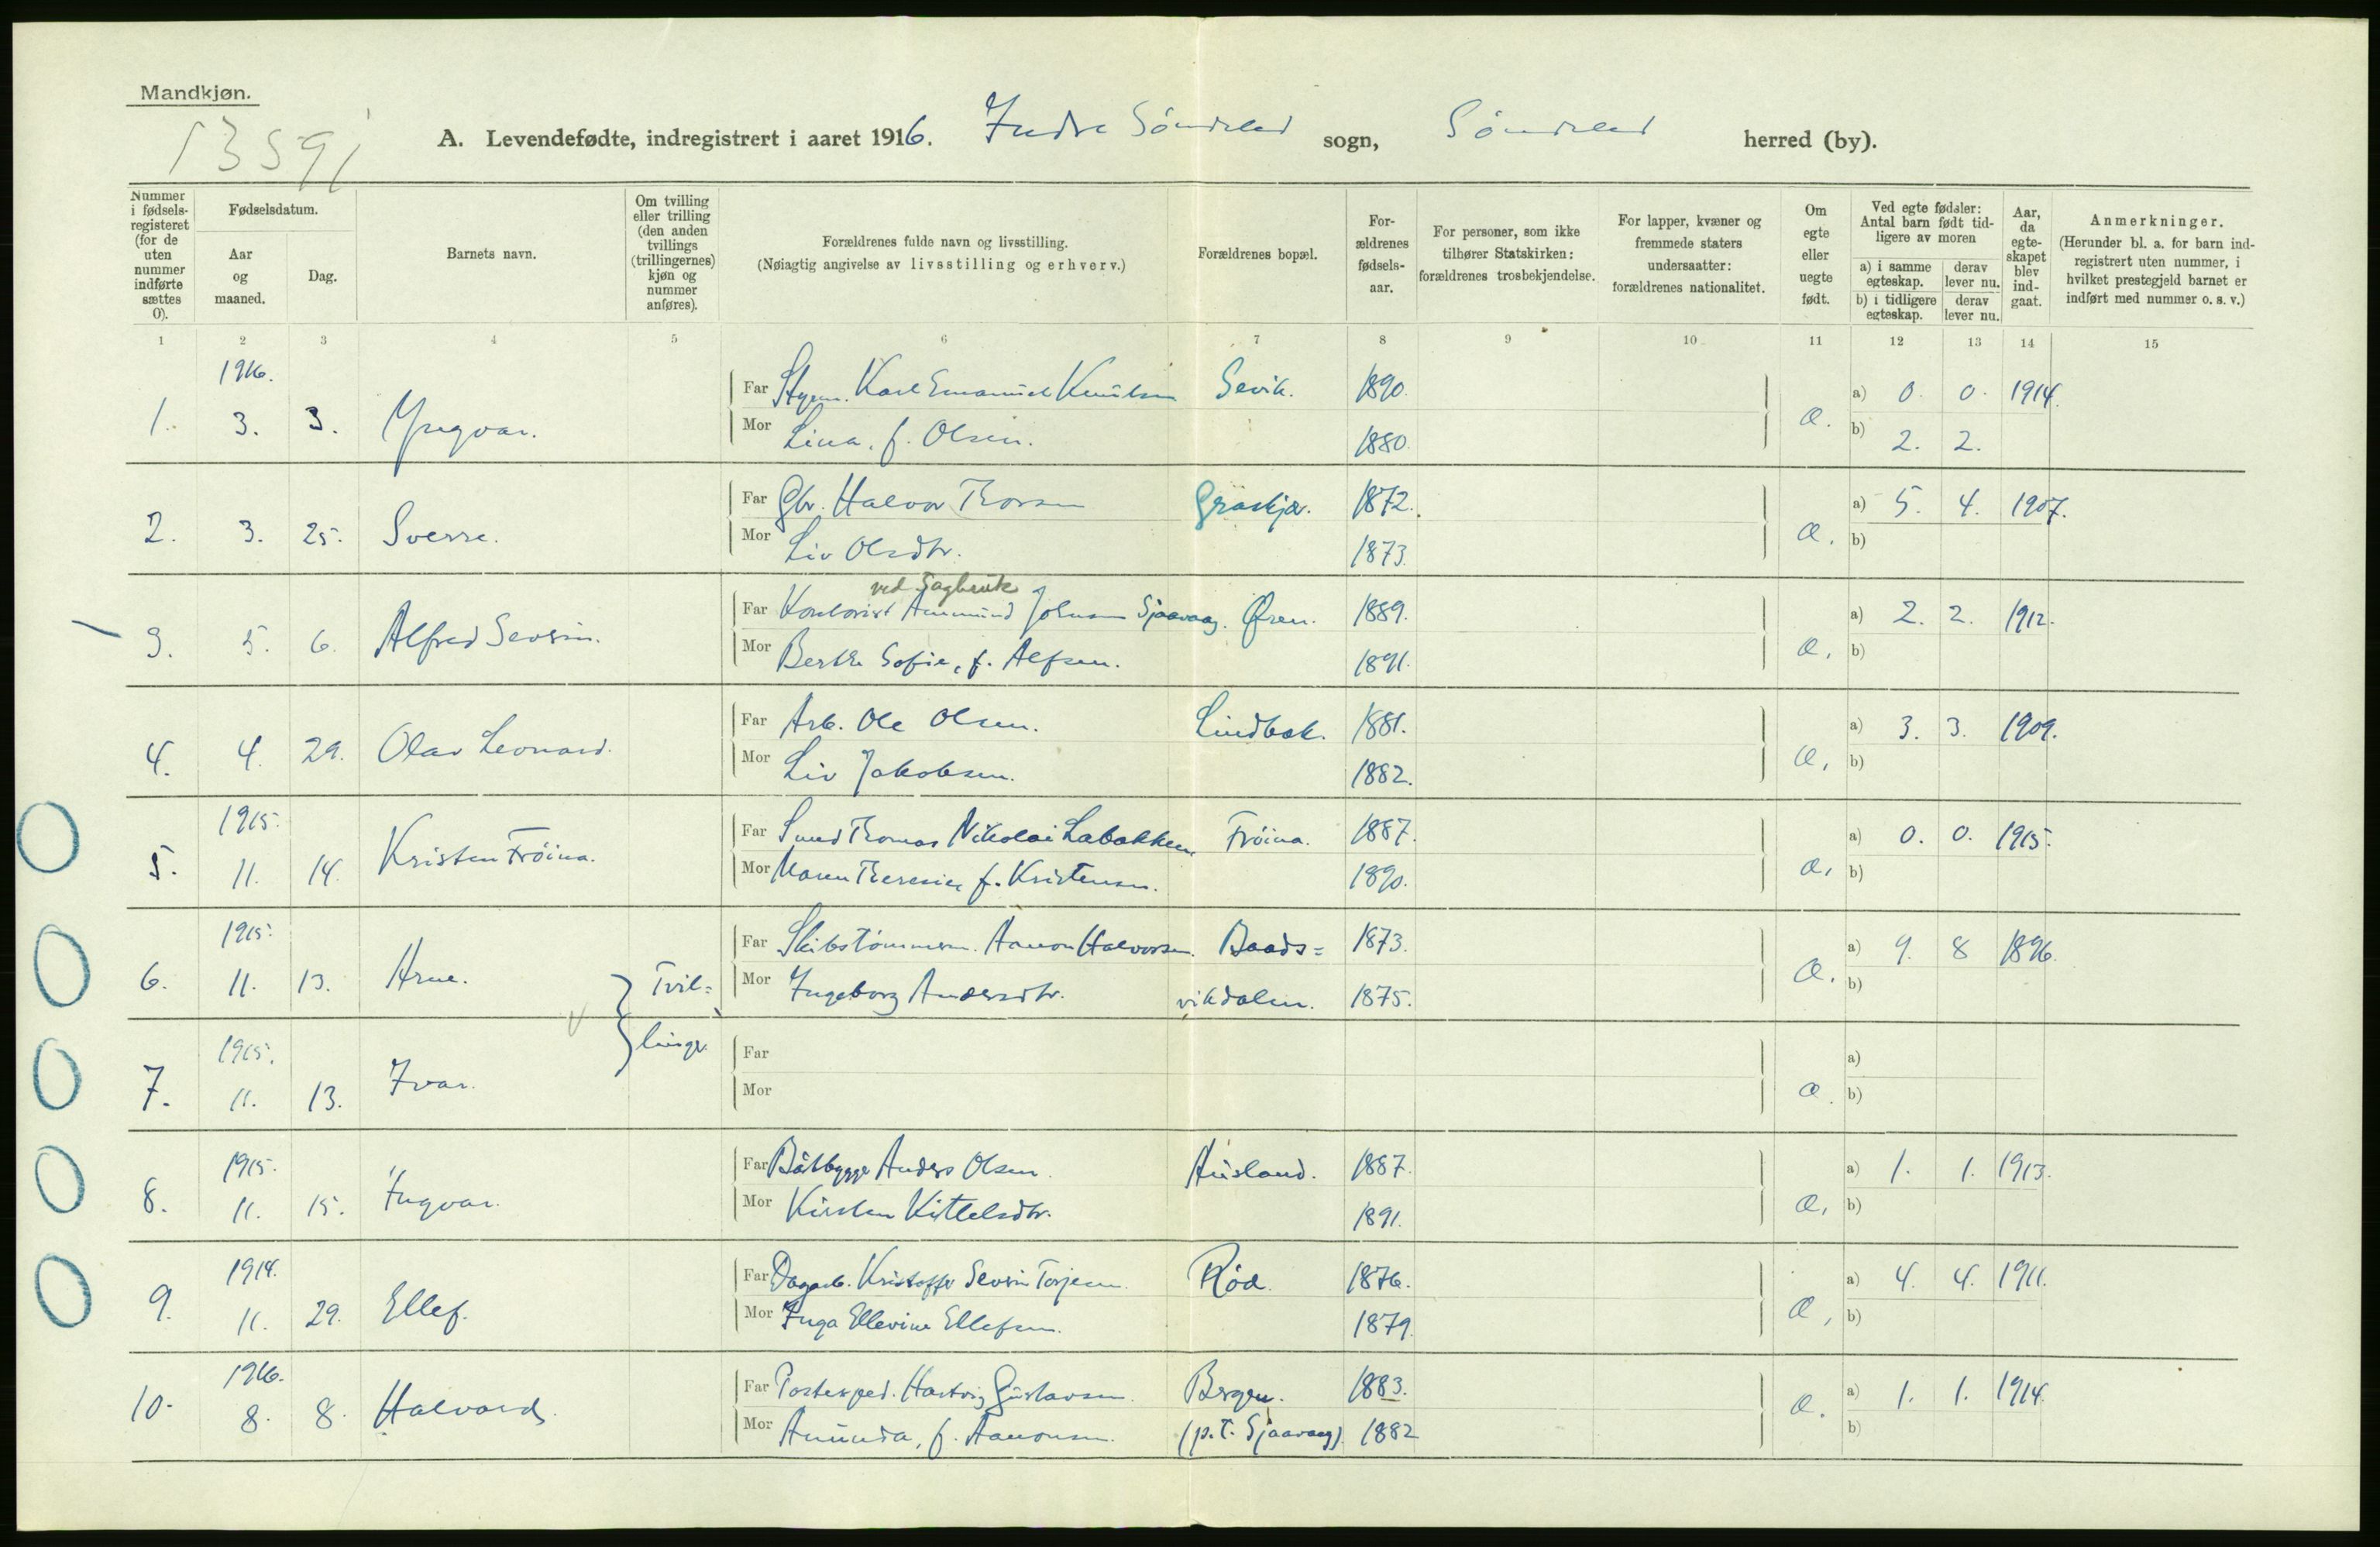 Mandkjøn.
13591
A. Levendefødte, indregistrert i aaret 1916. Indre Söndeled sogn, Söndeled herred (by).
Nummer i fødsels-registeret (for de uten nummer indførte sættes 0).
Fødselsdatum.
Aar og maaned.
Dag.
Barnets navn.
Om tvilling eller trilling (den anden tvillings (trillingernes) kjøn og nummer anføres).
Forældrenes fulde navn og livsstilling.
(Nøiagtig angivelse av livsstilling og erhverv.)
Forældrenes bopæl.
For-ældrenes fødsels-aar.
For personer, som ikke tilhører Statskirken: forældrenes trosbekjendelse.
For lapper, kvæner og fremmede staters undersaatter: forældrenes nationalitet.
Om egte eller uegte født.
Ved egte fødsler: Antal barn født tid-ligere av moren
a) i samme egteskap.
derav lever nu.
b) i tidligere egteskap.
derav lever nu.
Aar, da egte-skapet blev ind-gaat.
Anmerkninger.
(Herunder bl. a. for barn ind-registrert uten nummer, i hvilket prestegjeld barnet er indført med nummer o. s. v.)
1 2 3 4 5 6 7 8 9 10 11 12 13 14 15
1916.
1. 3. 3. Yngvar.
Far Styrm. Karl Emanuel Knutsen Sevik. 1890. a) 0. 0. 1914.
Mor Lina, f. Olsen. 1880. b) 2. 2.
2. 3. 25. Sverre.
Far Gbr. Halvor Thorsen 1872. a) 5. 4. 1907.
Mor Liv Olsdtr. 1873. b)
ved Sagbruk
3. 5. 6. Alfred Severin.
Far Kontorist Aanmund Johnsen Sjaavaag. Øren. 1889. a) 2. 2. 1912.
Mor Berthe Sofie, f. Alfsen. 1891. b)
4. 4. 29. Olav Leonard.
Far Arb. Ole Olsen. Lindbæk. 1881. a) 3. 3. 1909.
Mor Liv Jakobsen. 1882. b)
1915.
5. 11. 14. Kristen Fröina.
Far Smed Thomas Nikolai Labakken Fröina. 1887. a) 0. 0. 1915.
Mor Maren Theresie, f. Kristensen. 1890. b)
1915.
6. 11. 13. Arne. Tvil=
Far Skibstömmerm. Aanon Halvorsen. Baads= 1873. a) 9. 8 1896.
Mor Ingeborg Andersdtr. vikdalen. 1875. b)
1915.
7. 11. 13. Ivar. linger
Far a)
Mor b)
1915.
8. 11. 15. Ingvar.
Far Båtbygger Anders Olsen. Ausland. 1887. a) 1. 1. 1913.
Mor Kirsten Kittelsdtr. 1891. b)
1914.
9. 11. 29. Ellef.
Far Dagarb. Kristoffer Severin Torjesen. Röd. 1876. a) 4. 4. 1911.
Mor Inga Ellevine Ellefsen. 1879. b)
1916.
10. 8. 8. Halvard.
Far Postexped. Hartvig Gustavsen. Bergen. 1883. a) 1. 1. 1914.
Mor Amunda, f. Aanonsen. (p.t. Sjaavaag). 1882 b)